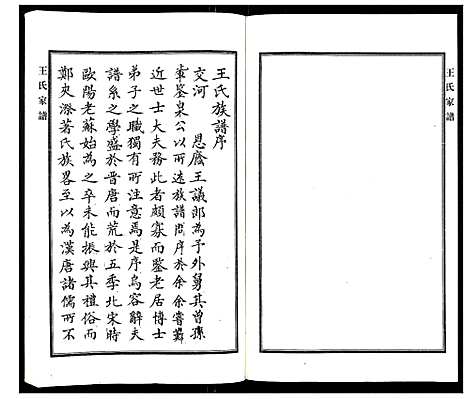 王氏家譜
王氏族譜序
交河 恩廕王議郎為予外舅其曾孫
葦鉴泉公以所迻族譜問序於余余嘗歎
近世士大夫務此者頗寡而鉴老居博士
弟子之職獨有所注意焉是序烏容辭夫
譜系之學盛於晋唐而荒於五季北宋時
歐陽老蘇始為之卒未能振興其檀俗而
鄭夾漈著氏族畧至以為漢唐諸儒所不
王氏家譜